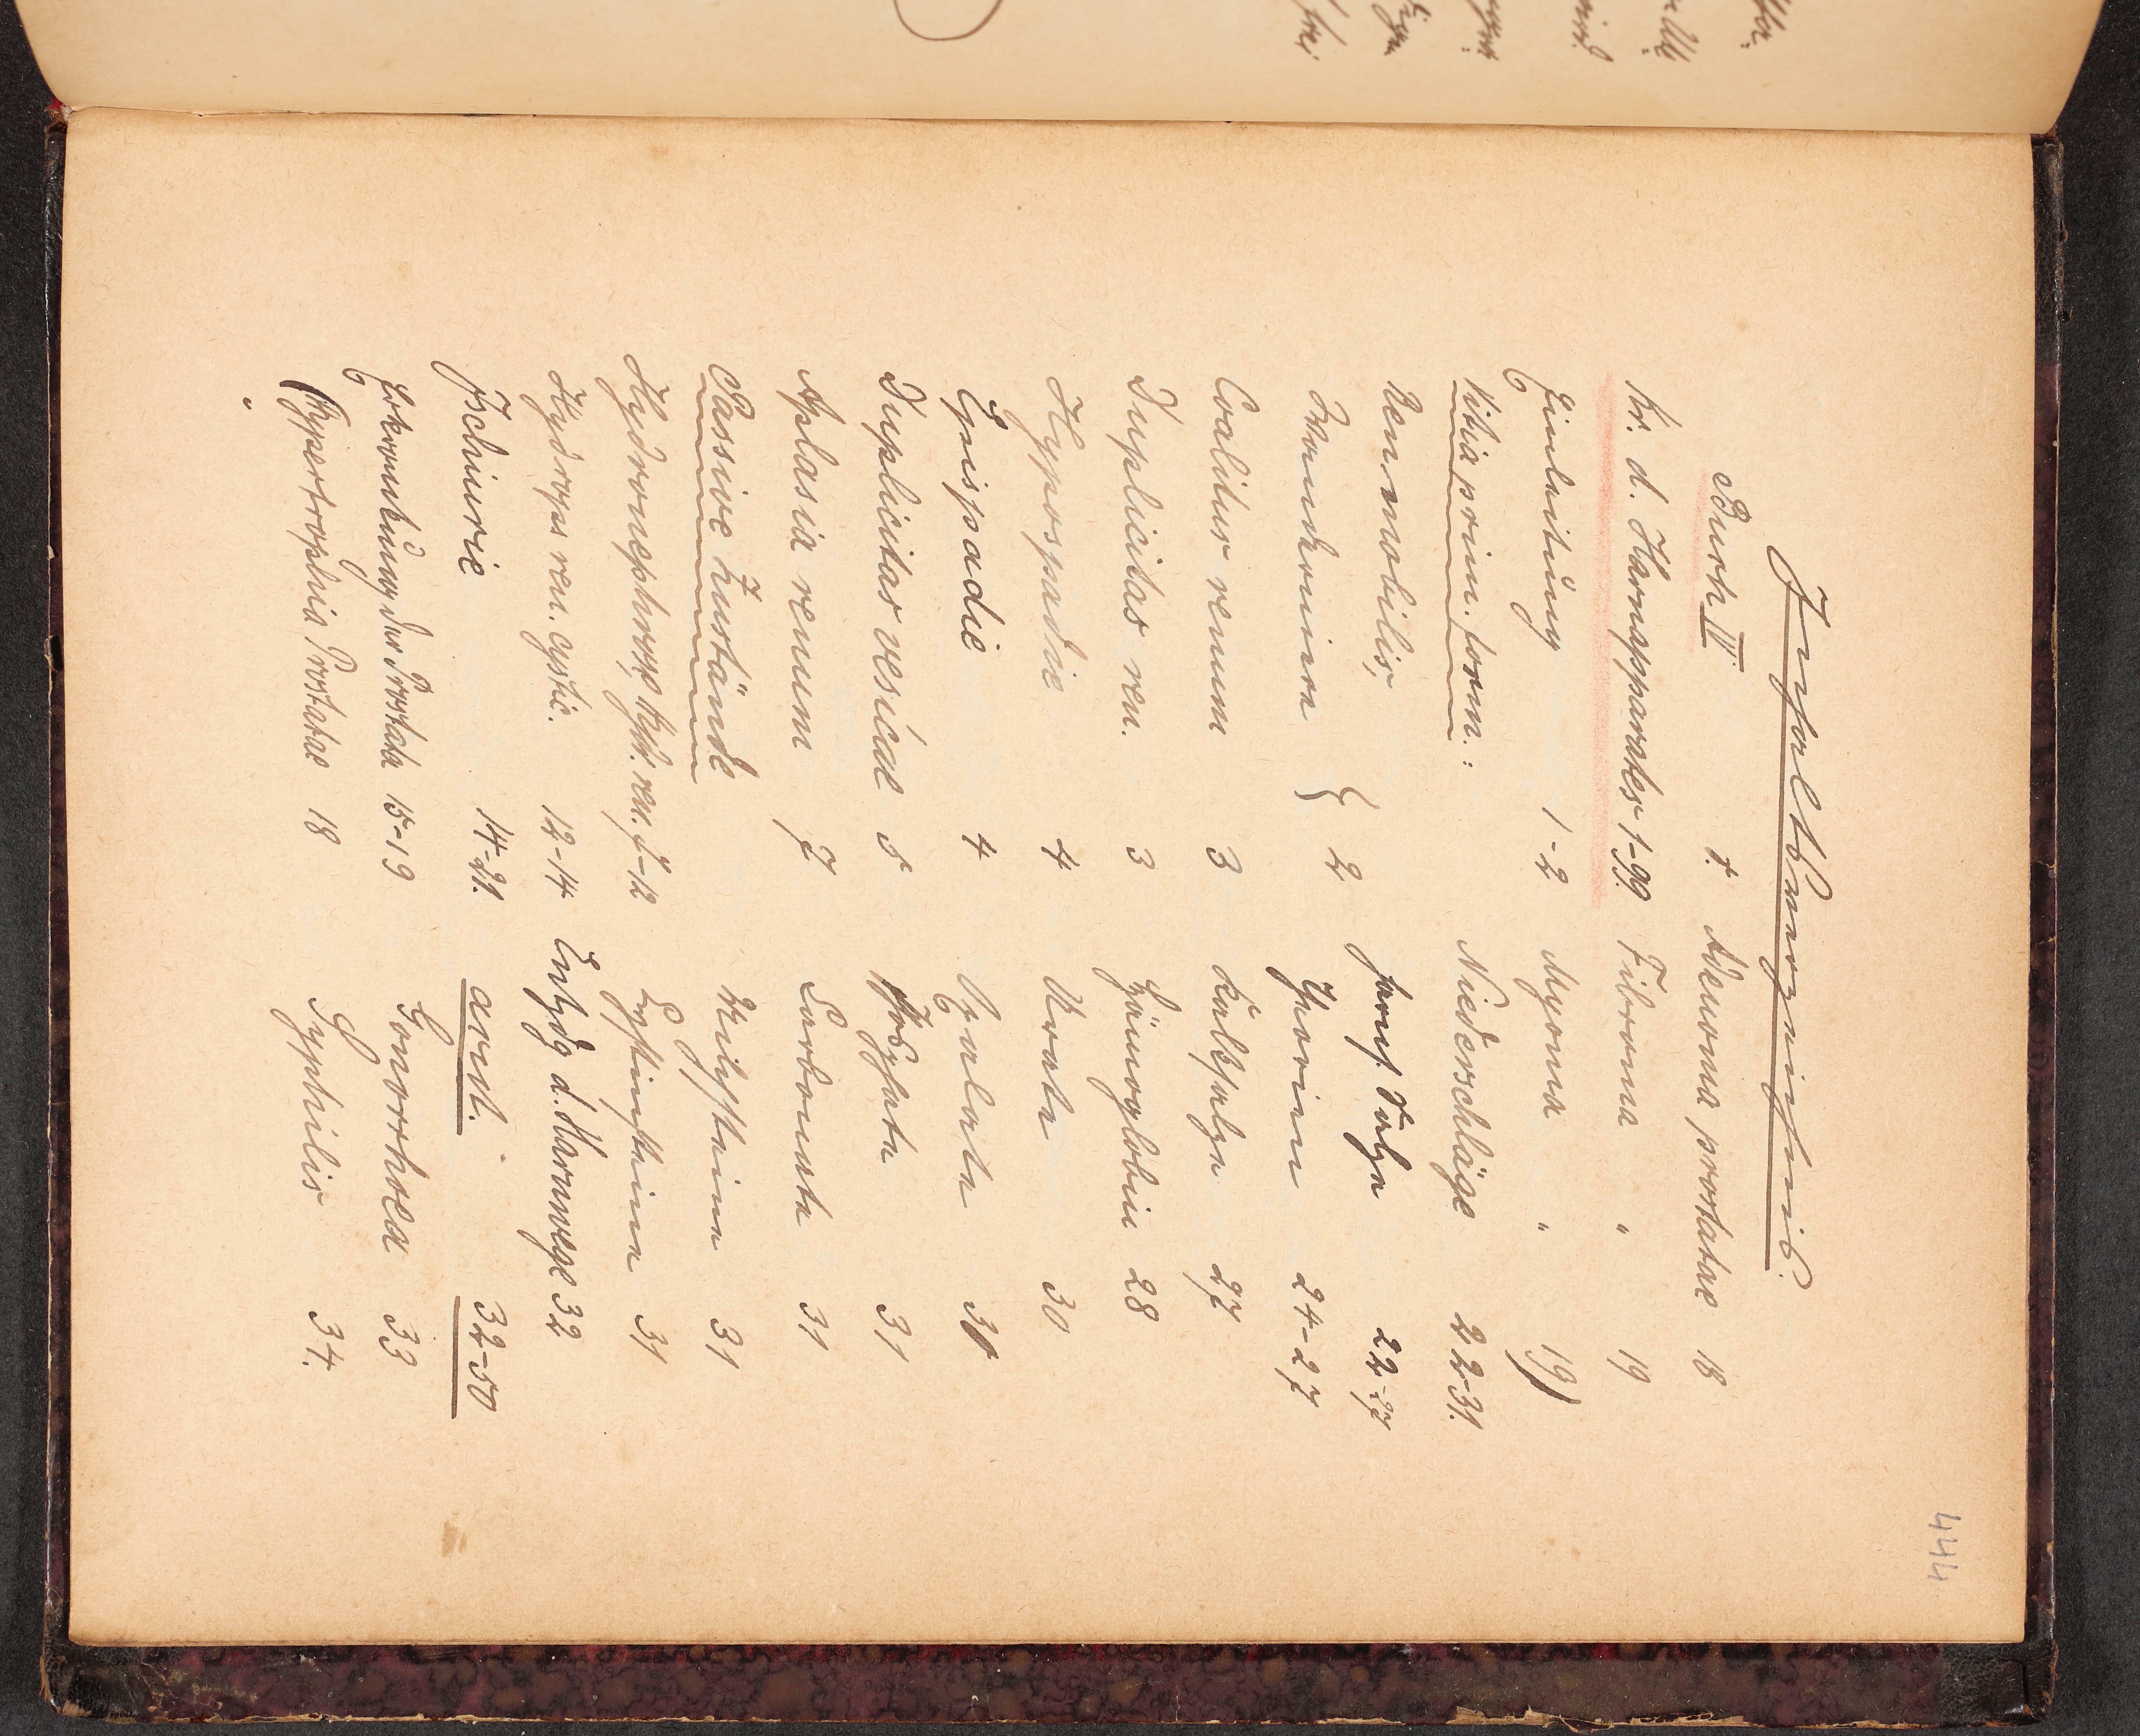 444
Inhaltsverzeichnis.
Buch IV.
Kr. d. Harnapparates 1-99.
Einleitung 1-2
Vitia prim. form.:
Ren mobilis,
Wanderniere } 2
Coalitus renum 3
Duplicitas ren. 3
Hypospadie 4
Epispadie 4
Duplicitas vesicae 5
Aplasia renum 7
Passive Zustände
Hydronephrose, Hydr. ren. 7-12
Hydrops ren. cystic. 12-14
Ischurie 14-21.
Erkrankung der Prostata 15-19
(Hypertrophia Prostatae 18
Adenoma prostatae 18
Fibroma " 19
Myoma " 19)
Niederschläge 22-31.
harns. Salze 22-27
24-27
Kalksalze 27
Hämoglobin 28
Urate 30
Oxalate 30
Phosphate 31
Carbonate 31
31
Cystinsteine 31
Entzdg d. Harnwege 32
acut. 32-50
Gonorrhoea 33
Syphilis 34.